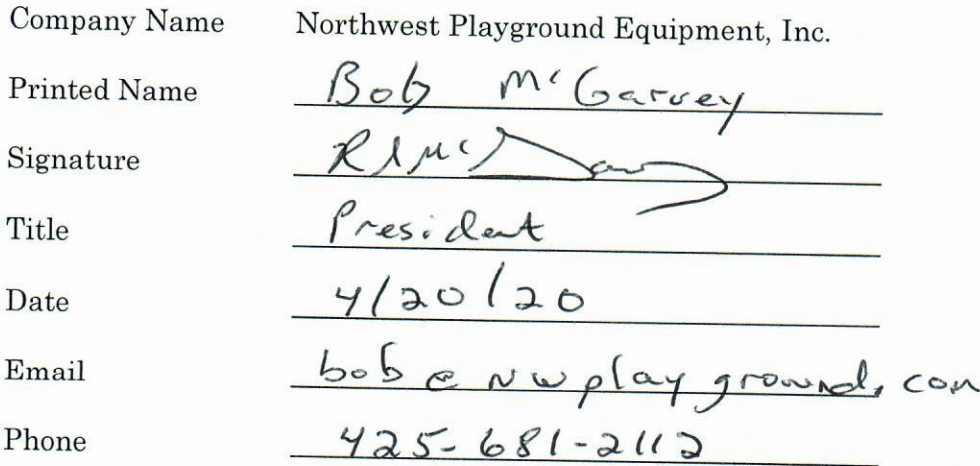 Company Name Northwest Playground Equipment, Inc.
Printed Name Bob McGarvey
Signature
Title President
Date 4/20/20
Email bob@nwplayground.com
Phone 425-681-2112